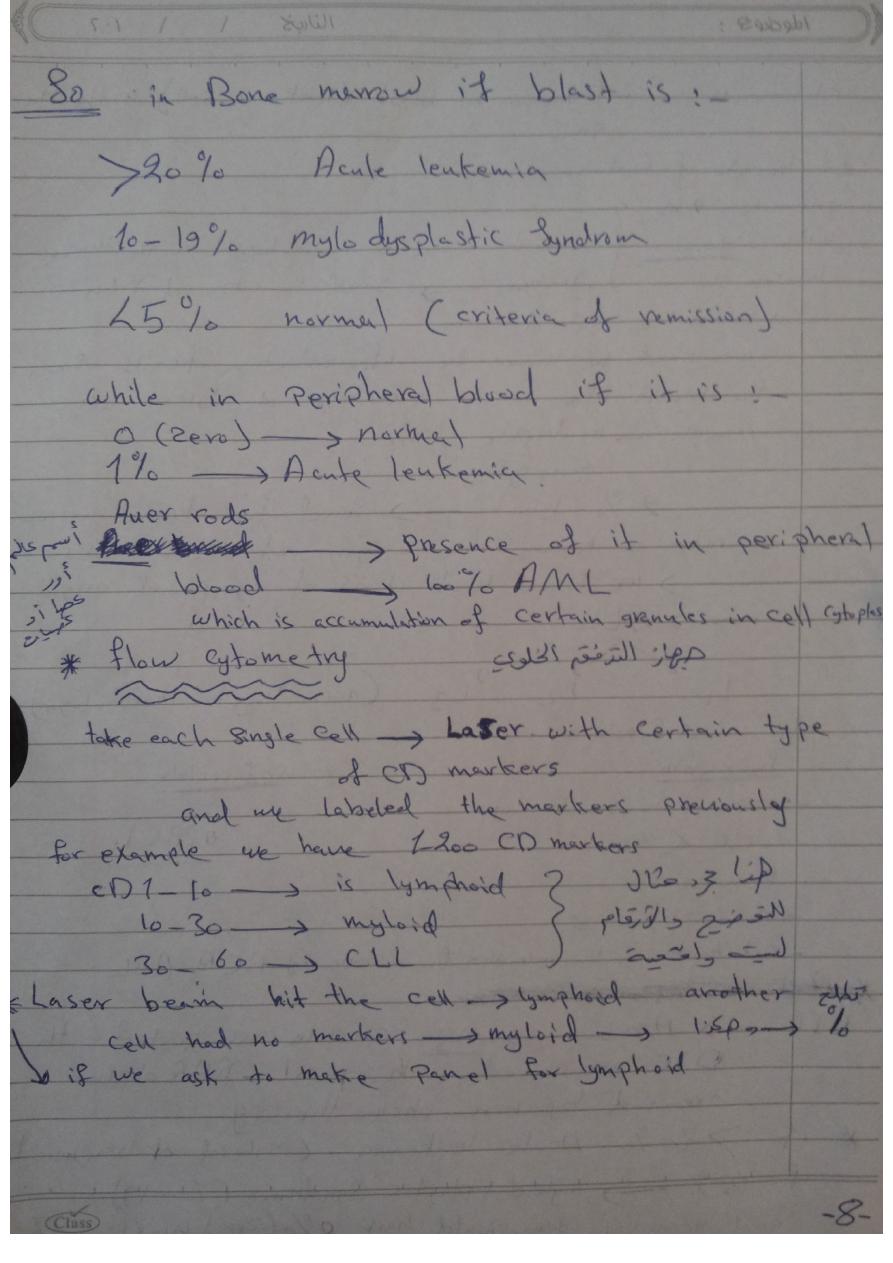 So in Bone marrow if blast is :-
>20% Acute leukemia
10-19% mylodysplastic Syndrom
<5% normal (criteria of remission)
while in peripheral blood if it is :-
0 (zero) → normal
1% → Acute leukemia.
Auer rods
→ presence of it in peripheral
أسم عالم
أور
عصا أو
blood → 100% AML
which is accumulation of certain granules in cell cytoplas
* flow cytometry جهاز التدفق الخلوي
take each single cell → Laser with certain type
of CD markers
and we labeled the markers previously
for example we have 1200 CD markers
CD 1-10 → is lymphoid } هذا مجرد مثال
10-30 → myloid للتوضيح والأرقام
30-60 → CLL ليست واقعية
Laser beam hit the cell → lymphoid another
cell had no markers → myloid → → %
if we ask to make panel for lymphoid
Class
-8-